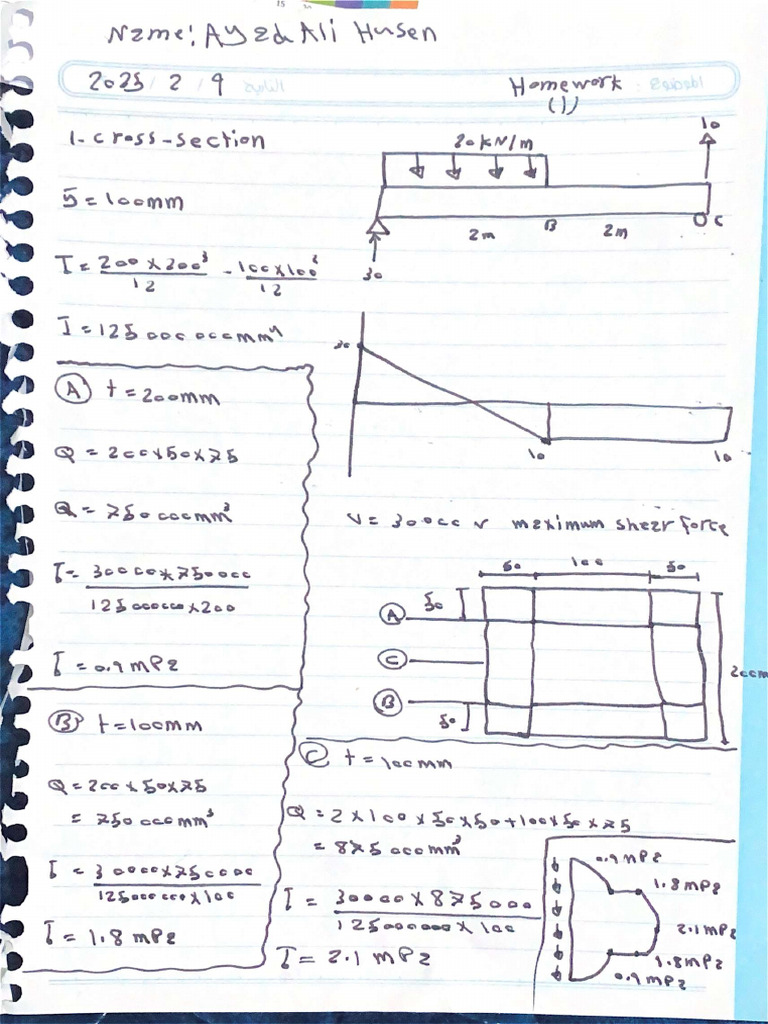 Name: Ayad Ali Husen
2025 / 2 / 9
Homework
(1)
1- cross-section
ȳ = 100mm
I = 200 × 200³ / 12 - 100 × 100³ / 12
I = 125 000 000 mm⁴
20 kN/m
10
2m
B
2m
C
30
30
10
10
V = 30000 N maximum shear force
A t = 200mm
Q = 200×50×75
Q = 750 000mm³
τ = 30000×750000 / 125000000×200
τ = 0.9 mPa
50
100
50
50
A
C
B
50
B t = 100mm
Q = 200 × 50×75
= 750 000mm³
τ = 30000×750000 / 125000000×100
τ = 1.8 mPa
C t = 100mm
Q = 2 × 100 × 50 × 50 + 100 × 50 × 75
= 875 000mm³
τ = 30000 × 875000 / 125000000 × 100
τ = 2.1 mPa
0.9 mPa
1.8 mPa
2.1 mPa
1.8 mPa
0.9 mPa